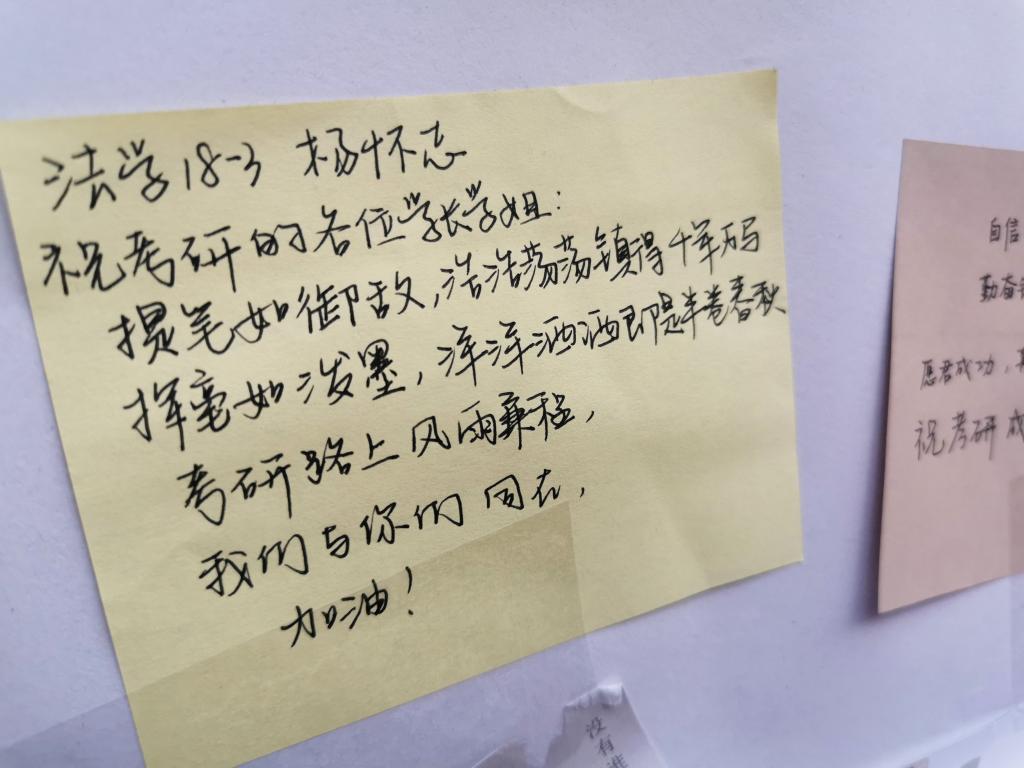 法学18-3 杨怀志
祝考研的各位学长学姐:
提笔如御敌,浩浩荡荡镇得千军万码
挥毫如泼墨,洋洋洒洒即是半卷春秋
考研路上风雨兼程,
我们与你们同在,
加油!
自信
勤奋
愿君成功,
祝考研成
没有谁